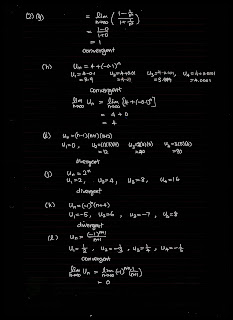 (2) (g) = lim n→∞ (1 - 1/n² / 1 + 1/n²)
= 1-0 / 1+0
= 1
convergent
(h) Uₙ = 4 + (-0.1)ⁿ
U₁ = 4-0.1 U₂ = 4+0.01 U₃ = 4-0.001 U₄ = 4+0.0001
= 3.9 = 4.01 = 3.999 = 4.0001
convergent
lim n→∞ Uₙ = lim n→∞ [4+(-0.1)ⁿ]
= 4 + 0
= 4
(i)
U₁ = 0,
divergent
(j) Uₙ = 2ⁿ
U₁ = 2, U₂ = 4, U₃ = 8, U₄ = 16
divergent
(k) Uₙ = (-1)ⁿ(n+4)
U₁ = -5, U₂ = 6, U₃ = -7, U₄ = 8
divergent
(l) Uₙ = (-1)ⁿ⁺¹ / n+1
U₁ = 1/2, U₂ = -1/3, U₃ = 1/4, U₄ = -1/5
convergent
lim n→∞ Uₙ = lim n→∞ (-1)ⁿ⁺¹ 1/(n+1)
= 0